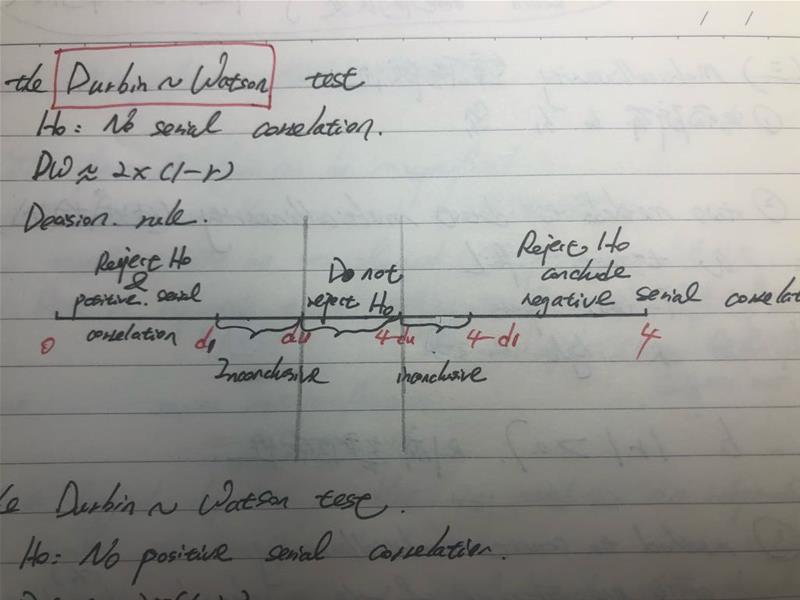 the Durbin ~ Watson test
Ho: No serial correlation.
DW ≈ 2×(1-r)
Decision rule.
Reject Ho
&
positive serial
correlation
Do not
reject Ho
Reject Ho
conclude
negative serial correlat
0 dl du 4-du 4-dl 4
Inconclusive inconclusive
le Durbin ~ Watson test.
Ho: No positive serial correlation.